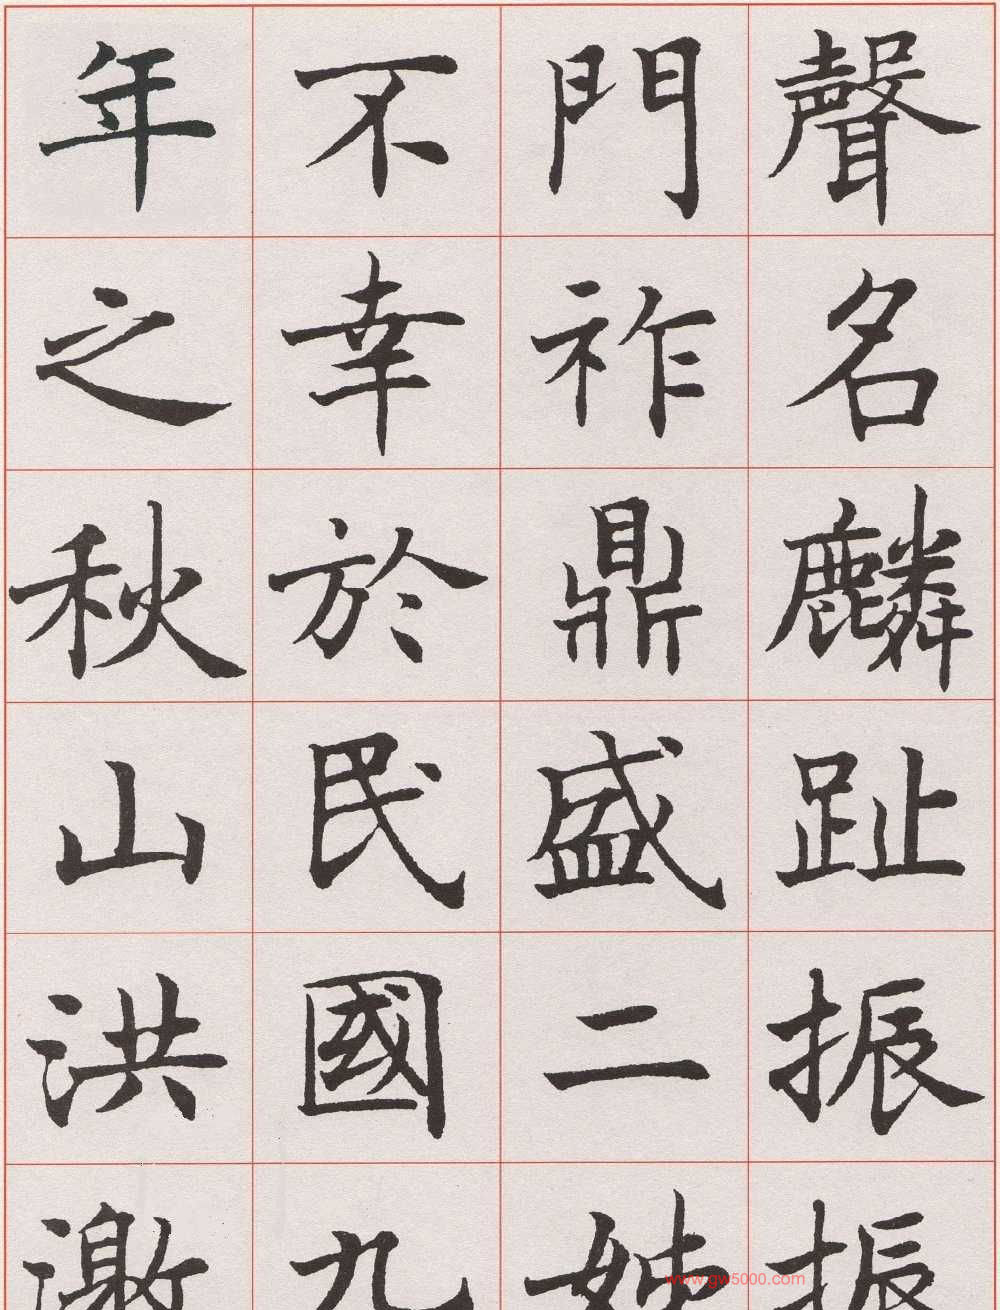 聲名麟趾振振
門祚鼎盛二姊
不幸於民國九
年之秋山洪激
www.gw5000.com